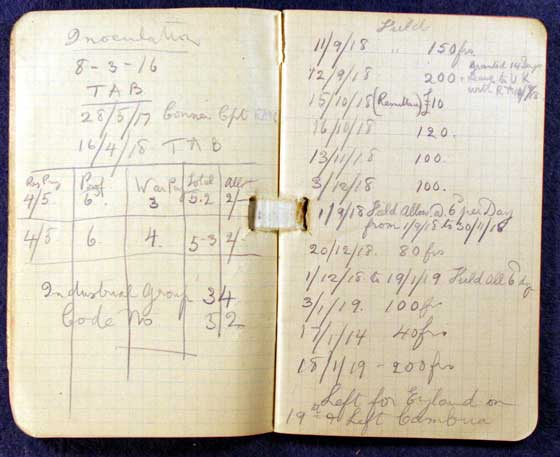 Inoculation
8-3-16
TAB
28/5/17 Connor Cpt RAMC
16/4/18 TAB
Reg Pay Prof War Pay Total Allot
4/5 6 3 5-2 2/-
4/5 6 4. 5-3 2/-
Industrial Group 34
Code No 52
Field
11/9/18 " 150 frs
12/9/18 200 granted 14 Days
leave to UK
with R.A.
15/10/18 (Remittance) £10
16/10/18 120.
13/11/18 100.
3/12/18 100.
1/9/18 Field Allow. @ 6d per Day
from 1/9/18 to 30/11/18
20/12/18. 80 frs
1/12/18 to 19/1/19 Field All 6d dy
3/1/19. 100 frs
1/1/14 40 frs
18/1/19 - 200 frs
Left for England on
19th & Left Cambrai